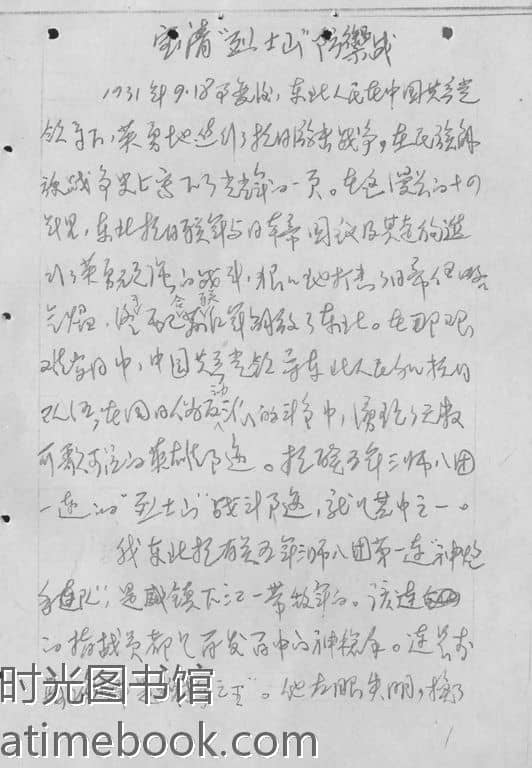 宝清"烈士山"防御战
1931年9·18事变后，东北人民在中国共产党
领导下，英勇地进行了抗日游击战争，在民族解
放战争史上写下了光荣的一页。在这漫长的十四
年里，东北抗日联军与日本帝国主义及其走狗进
行了英勇的战斗，狠狠地打击了日帝侵略
气焰，终于配合苏联红军解放了东北。在那艰
难岁月中，中国共产党领导东北人民的抗日
队伍，在同日伪反动派的斗争中，涌现了无数
可歌可泣的英雄事迹。抗联五军三师八团
一连的"烈士山"战斗事迹，就是其中之一。
我东北抗联五军三师八团第一连"神炮
手连队"，是威镇下江一带数年的。该连
的指战员都是百发百中的神枪手。连长
"。他左眼失明，
1
时光图书馆
atimebook.com